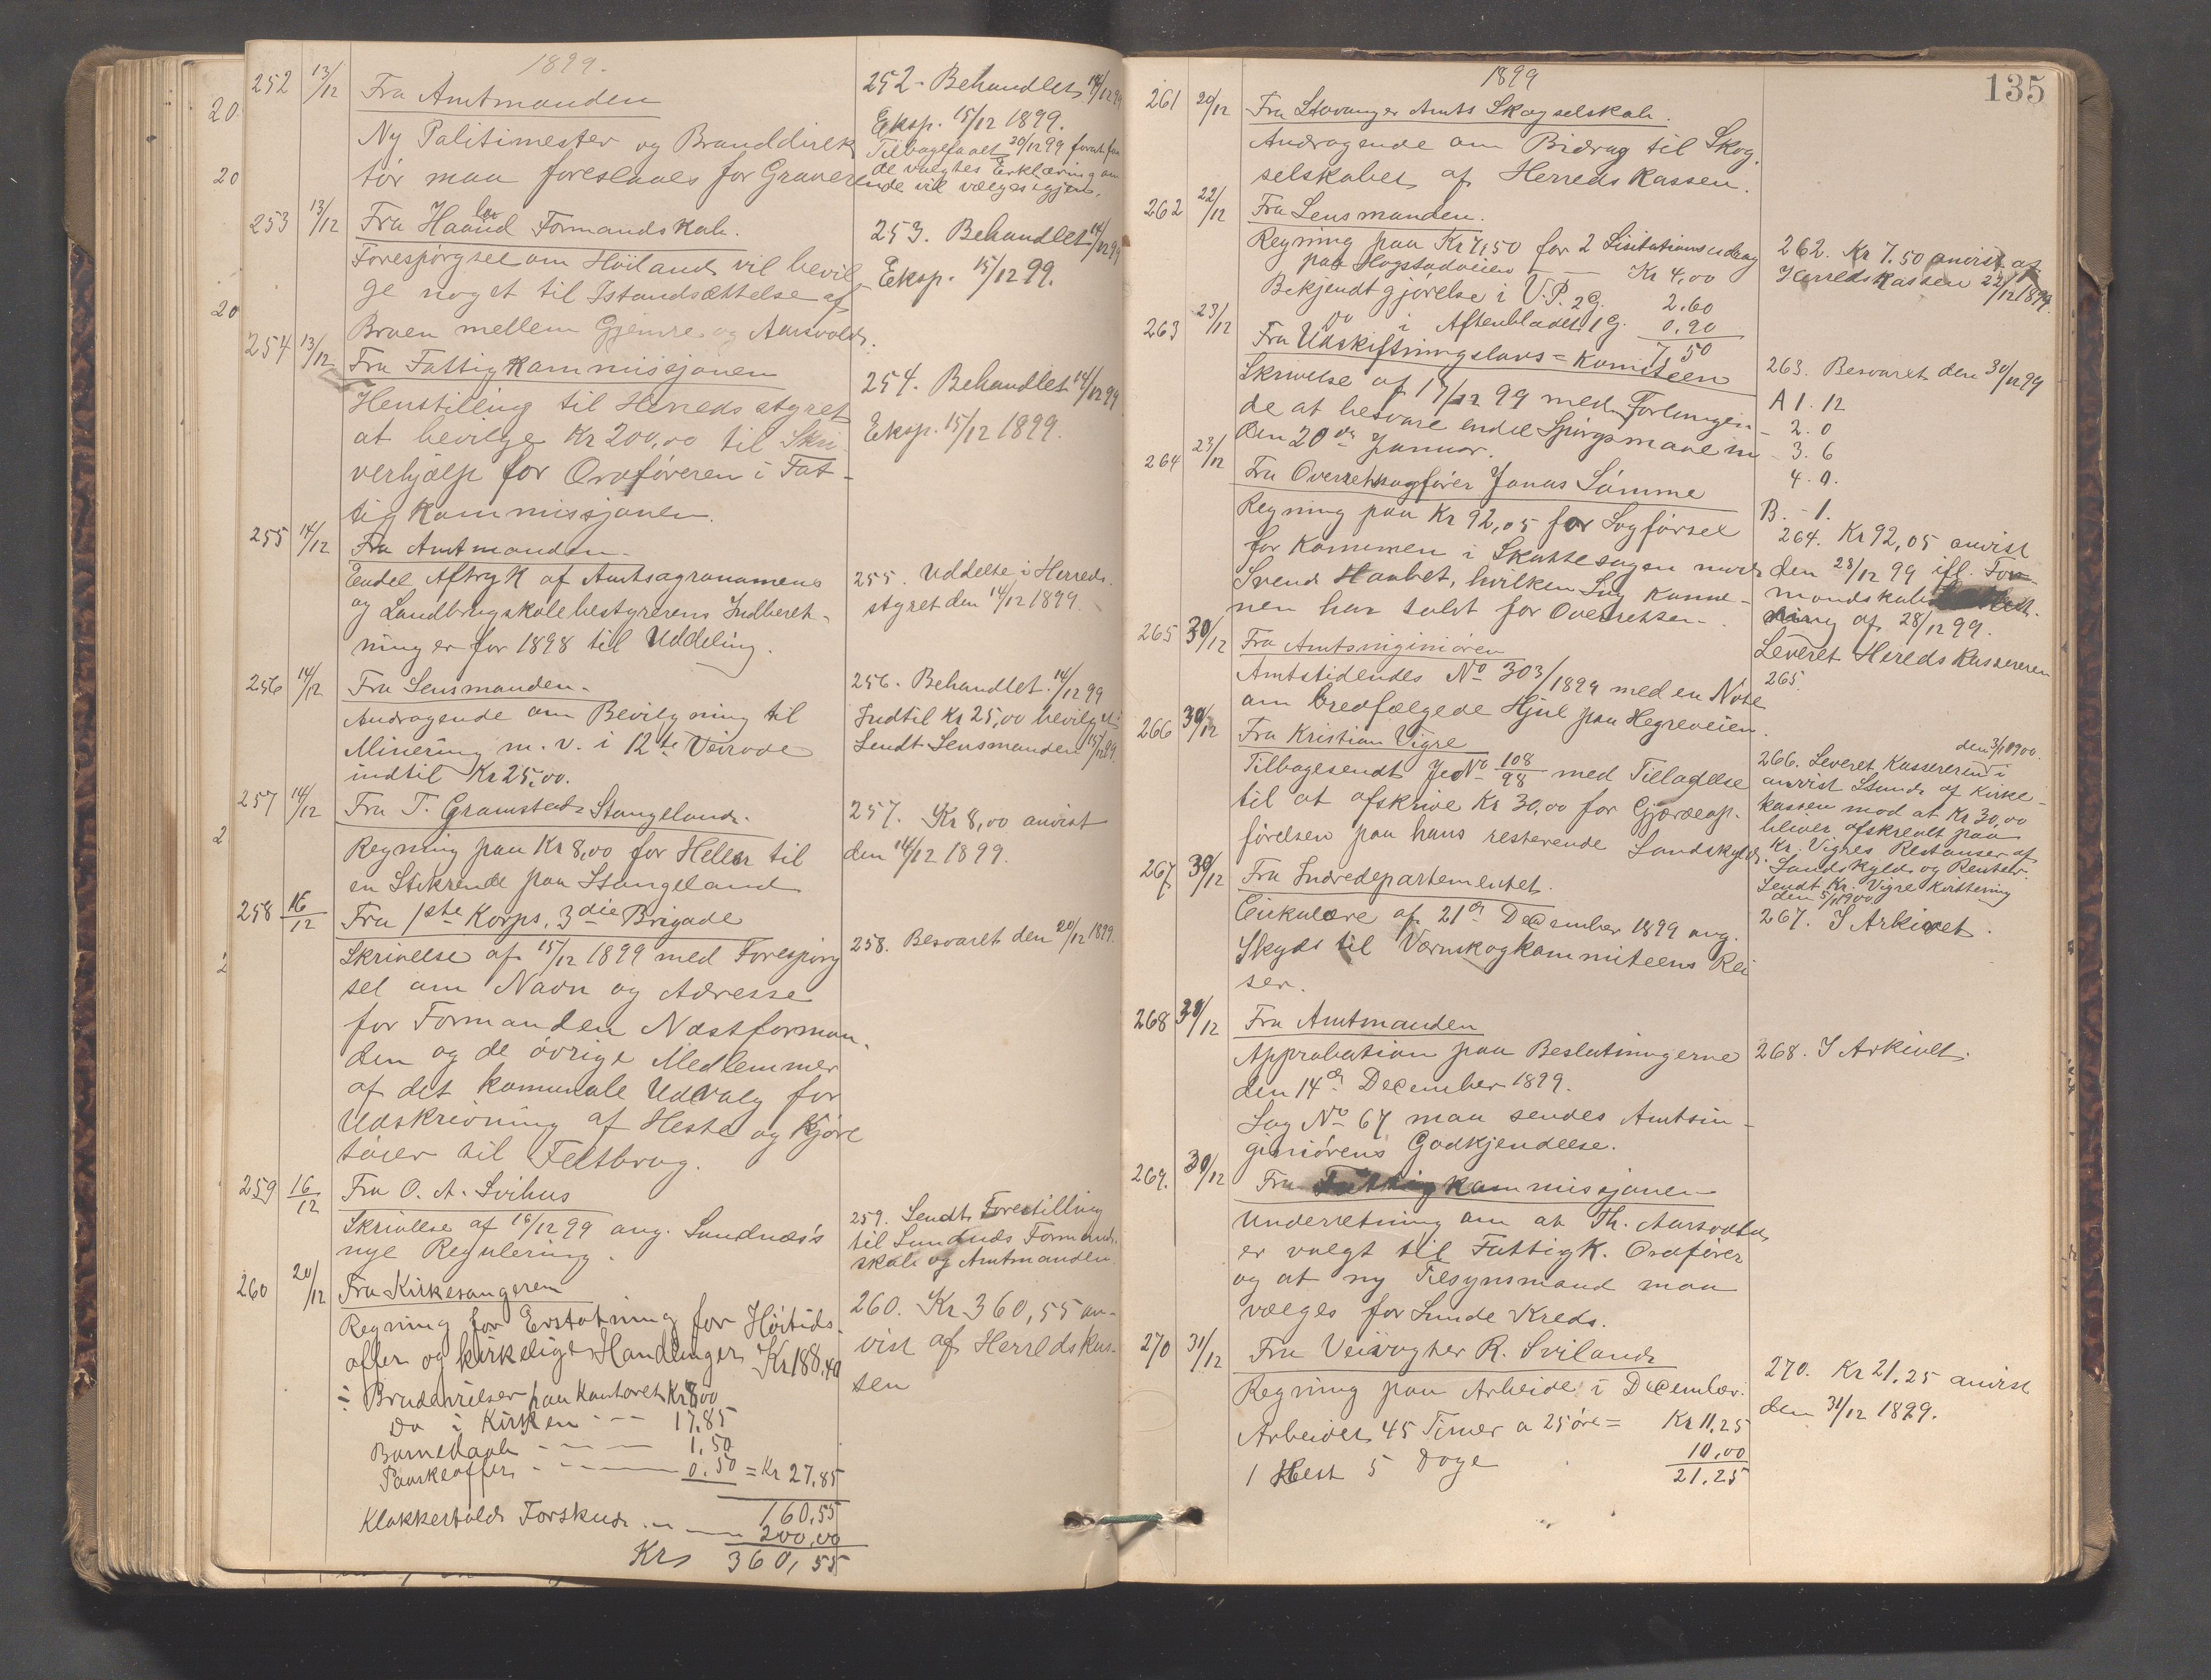 1899.
252 13/12 Fra Amtmanden
Ny Politimester og Branddirek
tör maa foreslaaes for Graver
252 - Behandlet 14/12 99
Eksp. 15/12 1899.
Tilbagesaaet 20/12 99
de valgtes Erklæring om
ende vil vælges igjen.
253 13/12 Fra Haaland Formandskab.
Forespörgsel om Höiland vil bevil
ge noget til Istandsættelse af
Broen mellem Gjemre og Aarsvold.
253. Behandlet 14/12 99
Eksp. 15/12 99.
254 13/12 Fra Fattigkommissjonen
Henstilling til Herredsstyret
at bevilge Kr 200,00 til Skri
verhjælp for Ordföreren i Fat-
tigkommissjonen.
254. Behandlet 14/12 99
Eksp. 15/12 1899.
255 14/12 Fra Amtmanden
Endel Aftryk af Amtsagronomens
og Landbrugskolebestyrerens Indberet-
ninger for 1898 til Uddeling.
255. Uddelte i Herreds-
styret den 14/12 1899.
256 14/12 Fra Lensmanden
Andragende om Bevilgning til
Minering m. v. i 12te Veirode
indtil Kr 25,00.
256. Behandlet 14/12 99
Indtil Kr 25,00 bevilget
Sendt Lensmanden 15/12 99.
257 14/12 Fra T. Gramstad Stangeland.
Regning paa Kr 8,00 for Heller til
en Stikrende paa Stangeland
257. Kr 8,00 anvist
den 14/12 1899.
258 16/12 Fra 1ste Korps, 3die Brigade
Skrivelse af 15/12 1899 med Forespörg
sel om Navn og Adresse
for Formanden Næstforman-
den og de övrige Medlemmer
af det komunale Udvalg for
Udskrivning af Heste og Kjöre
töier til Feltbrug.
258. Besvaret den 20/12 1899.
259 16/12 Fra O. A. Svihus
Skrivelse af 16/12 99 ang. Sandnæs's
nye Regulering.
259. Sendt Forestilling
til Formands-
skab og Amtmanden.
260 20/12 Fra Kirkesangeren
Regning for Erstatning for Höitids-
offer og kirkelige Handlinger Kr 188,40
÷ Brudevielser paa Kontoret Kr 8,00
Do i Kirken - - 17,85
Barnedaab - - - 1,50
Paaskeoffer - - - 0,50 = Kr 27,85
160,55
Klokkerhold Forskud - - 200,00
Kr 360,55
260. Kr 360,55 an-
vist af Herredskas-
sen
1899
135
261 20/12 Fra Stavanger Amts Skogselskab.
Andragende om Bidrag til Skog-
selskabet af Herredskassen.
262 22/12 Fra Lensmanden.
Regning paa Kr 7,50 for 2 Lisitationsudrag
paa Hogstadveien - - Kr 4,00
Bekjendtgjörelse i V.P. 2 G. 2,60
Do i Aftenbladet 1 G. 0,90
7,50
262. Kr 7.50 anvist af
Herredskassen 22/12 1899.
263 23/12 Fra Udskiftningslovs=Komiteen
Skrivelse af 17/12 99 med Forlangen-
de at besvare endel Spörgsmaal in
den 20de Januar.
263. Besvaret den 30/12 99
A 1. 12
- 2. 0
- 3. 6
4. 0.
B. - 1.
264 23/12 Fra Overretsagförer Jonas Sömme
Regning paa Kr 92,05 for Sagförsel
for Kommunen i Skattesagen mod
Svend Haabet, hvilken Sag Kommu-
nen har tabt for Overretten.
264. Kr 92,05 anvist
den 28/12 99 ifl. For-
mandskabs
ning af 28/12 99.
Leveret Heredskassereren
265 30/12 Fra Amtsingeniören
Amtstidendes No 303/1899 med en Note
om bredfælgede Hjul paa Hegreveien.
265.
266 30/12 Fra Kristian Vigre
Tilbagesendt JNo 108/98 med Tilladelse
til at afskrive Kr 30,00 for Gjærdeop-
förelsen paa hans resterende Landskyld.
266. Leveret Kassereren
den 3/1 1900
anvist af Kirke-
kassen mod at Kr 30,00
bliver afskrevet paa
Kr. Vigres Restanser af
Landskyld og Renter.
Sendt Kr. Vigre Kvittering
den 5/1 1900
267 30/12 Fra Indredepartementet.
Cirkulære af 21de December 1899 ang.
Skyds til Værnskogkommiteens Rei
ser.
267. I Arkivet.
268 30/12 Fra Amtmanden
Approbation paa Beslutningerne
den 14de December 1899.
Sag No 67 maa sendes Amtsin-
geniörens Godkjendelse.
268. I Arkivet.
269. 30/12 Fra Fattigkommissjonen
Underretning om at Th. Aarsvold
er valgt til Fattigk. Ordförer
og at ny Tilsynsmand maa
vælges for Sunde Kreds.
270 31/12 Fra Veivogter R. Sviland
Regning paa Arbeide i December.
Arbeidet 45 Timer a 25 öre = Kr 11,25
1 Hest 5 Dage 10,00
21,25
270. Kr 21,25 anvist
den 31/12 1899.